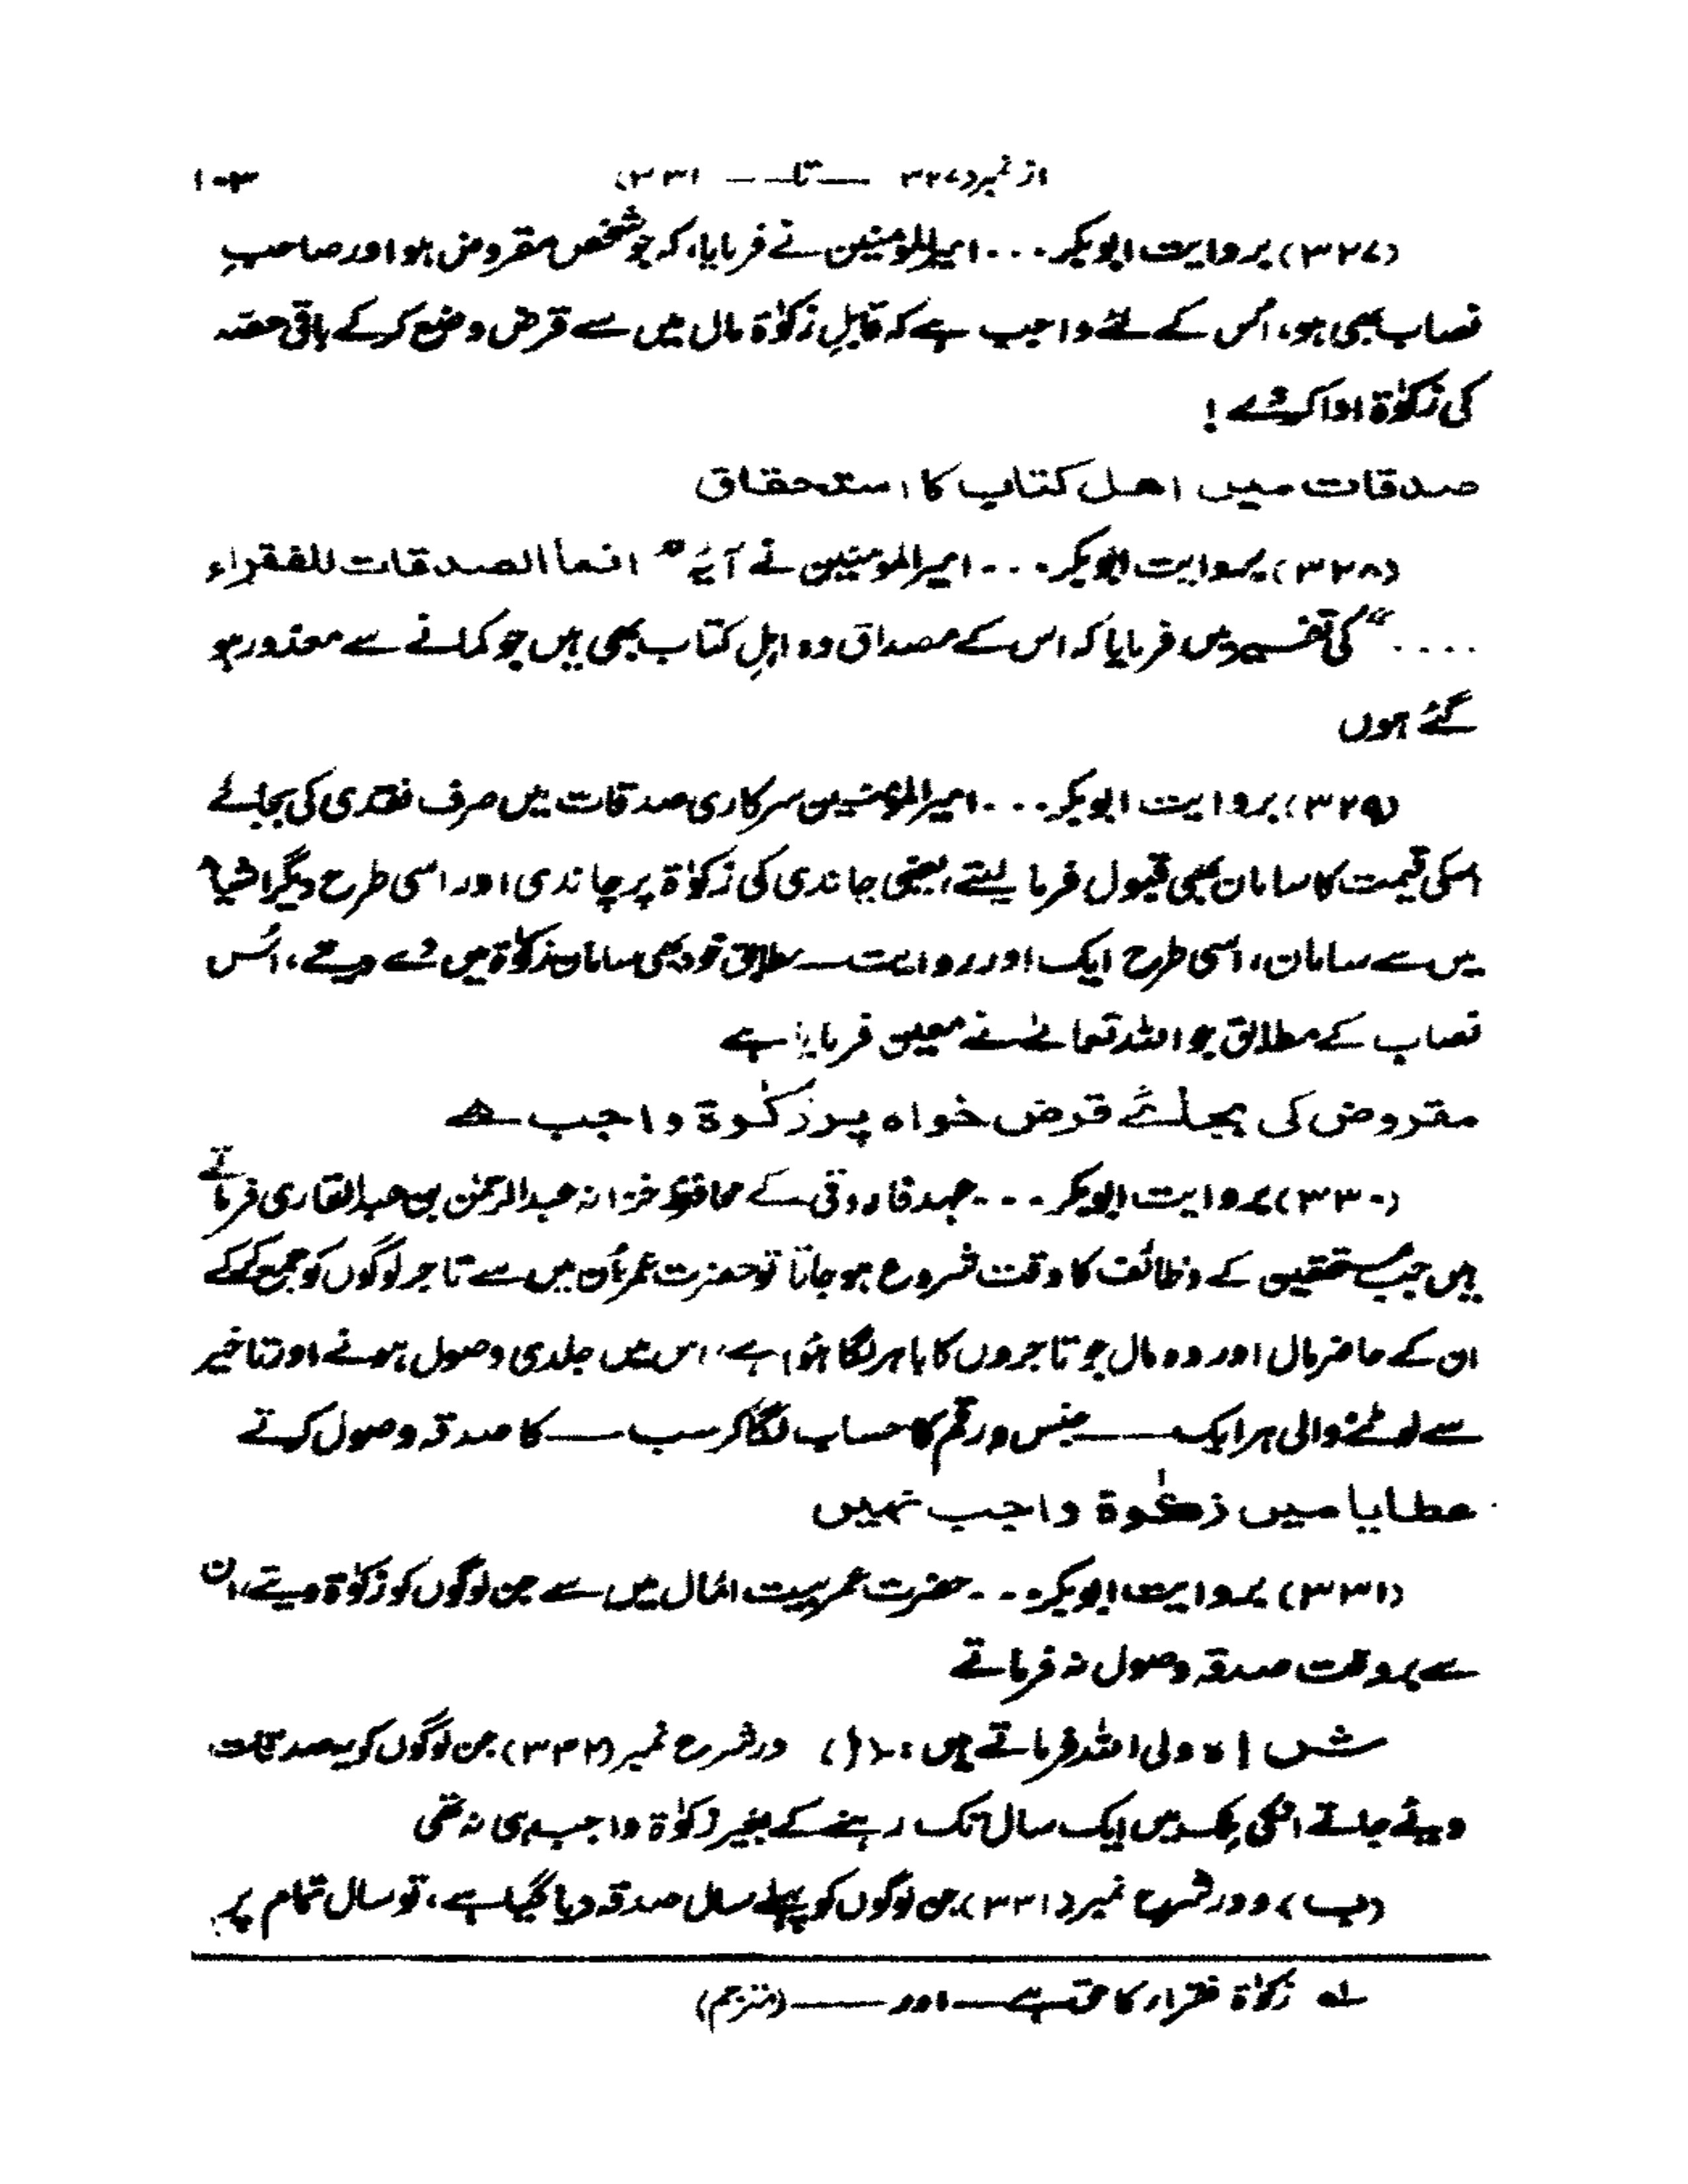 از نمبر (۳۲۷ — تا — ۳۳۱) ۱۰۳
(۳۲۷) بروایت ابوبکر... امیرالمؤمنین نے فرمایا، کہ جو شخص مقروض ہو اور صاحبِ
نصاب بھی ہو، اُس کے لئے واجب ہے کہ قابلِ زکوٰۃ مال میں سے قرض وضع کر کے باقی حصّہ
کی زکوٰۃ ادا کرے!
صدقات میں اھل کتاب کا استحقاق
(۳۲۸) بروایت ابوبکر... امیرالمؤمنین نے آیۂ " انما الصدقات للفقراء
...." کی تفسیر میں فرمایا کہ اس کے مصداق وہ اہلِ کتاب بھی ہیں جو کمانے سے معذور ہو
گئے ہوں
(۳۲۹) بروایت ابوبکر... امیرالمؤمنین سرکاری صدقات میں صرف نقدی کی بجائے
اسکی قیمت کا سامان بھی قبول فرما لیتے، یعنی چاندی کی زکوٰۃ پر چاندی اور اسی طرح دیگر اشیاء
میں سے سامان، اسی طرح ایک اور روایت — مطابق خود بھی سامان زکوٰۃ میں دے دیتے، اُس
نصاب کے مطابق جو اللہ تعالےٰ نے معین فرمایا ہے
مقروض کی بجائے قرض خواہ پر زکوٰۃ واجب ھے
(۳۳۰) بروایت ابوبکر... عہد فاروقی کے محافظِ خزانہ عبدالرحمٰن بن عبدالقاری فرماتے
ہیں جب مستحقین کے وظائف کا وقت شروع ہو جاتا تو حضرت عمرؓ اُن میں سے تاجر لوگوں کو جمع کر کے
ان کے حاضر مال اور وہ مال جو تاجروں کا باہر لگا ہُوا ہے، اس میں جلدی وصول ہونے اور تاخیر
سے لوٹنے والی ہر ایک — جنس و رقم کا حساب لگا کر سب — کا صدقہ وصول کرتے
عطایا میں زکوٰۃ واجب نہیں
(۳۳۱) بروایت ابوبکر... حضرت عمر بیت المال میں سے جن لوگوں کو زکوٰۃ دیتے، ان
سے بروقت صدقہ وصول نہ فرماتے
شاہ ولی اللہ فرماتے ہیں:- (ا) در شرح نمبر (۳۳۲) جن لوگوں کو یہ صدقات
دیئے جاتے انکی مِلک میں ایک سال تک رہنے کے بغیر زکوٰۃ واجب ہی نہ تھی
(ب) در شرح نمبر (۳۳۱) جن لوگوں کو پہلے سال صدقہ دیا گیا ہے، تو سال تمام پر
لہ زکوٰۃ فقراء کا حق ہے — اور — (مترجم)